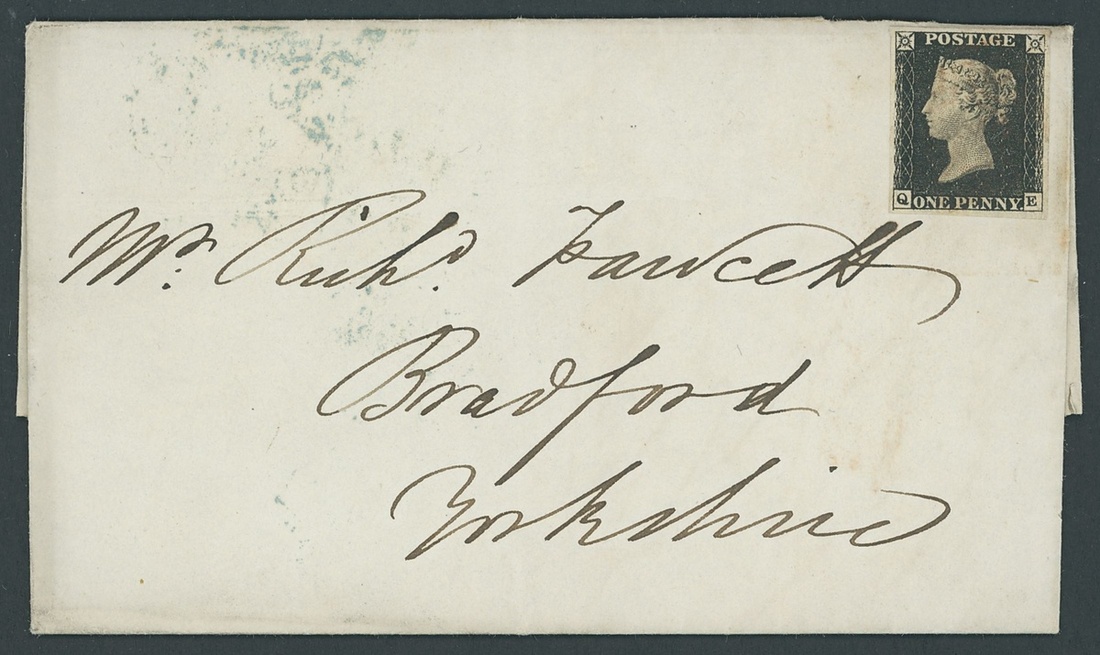 POSTAGE
Q ONE PENNY. E
Mr. Richd. Fawcett
Bradford
Yorkshire